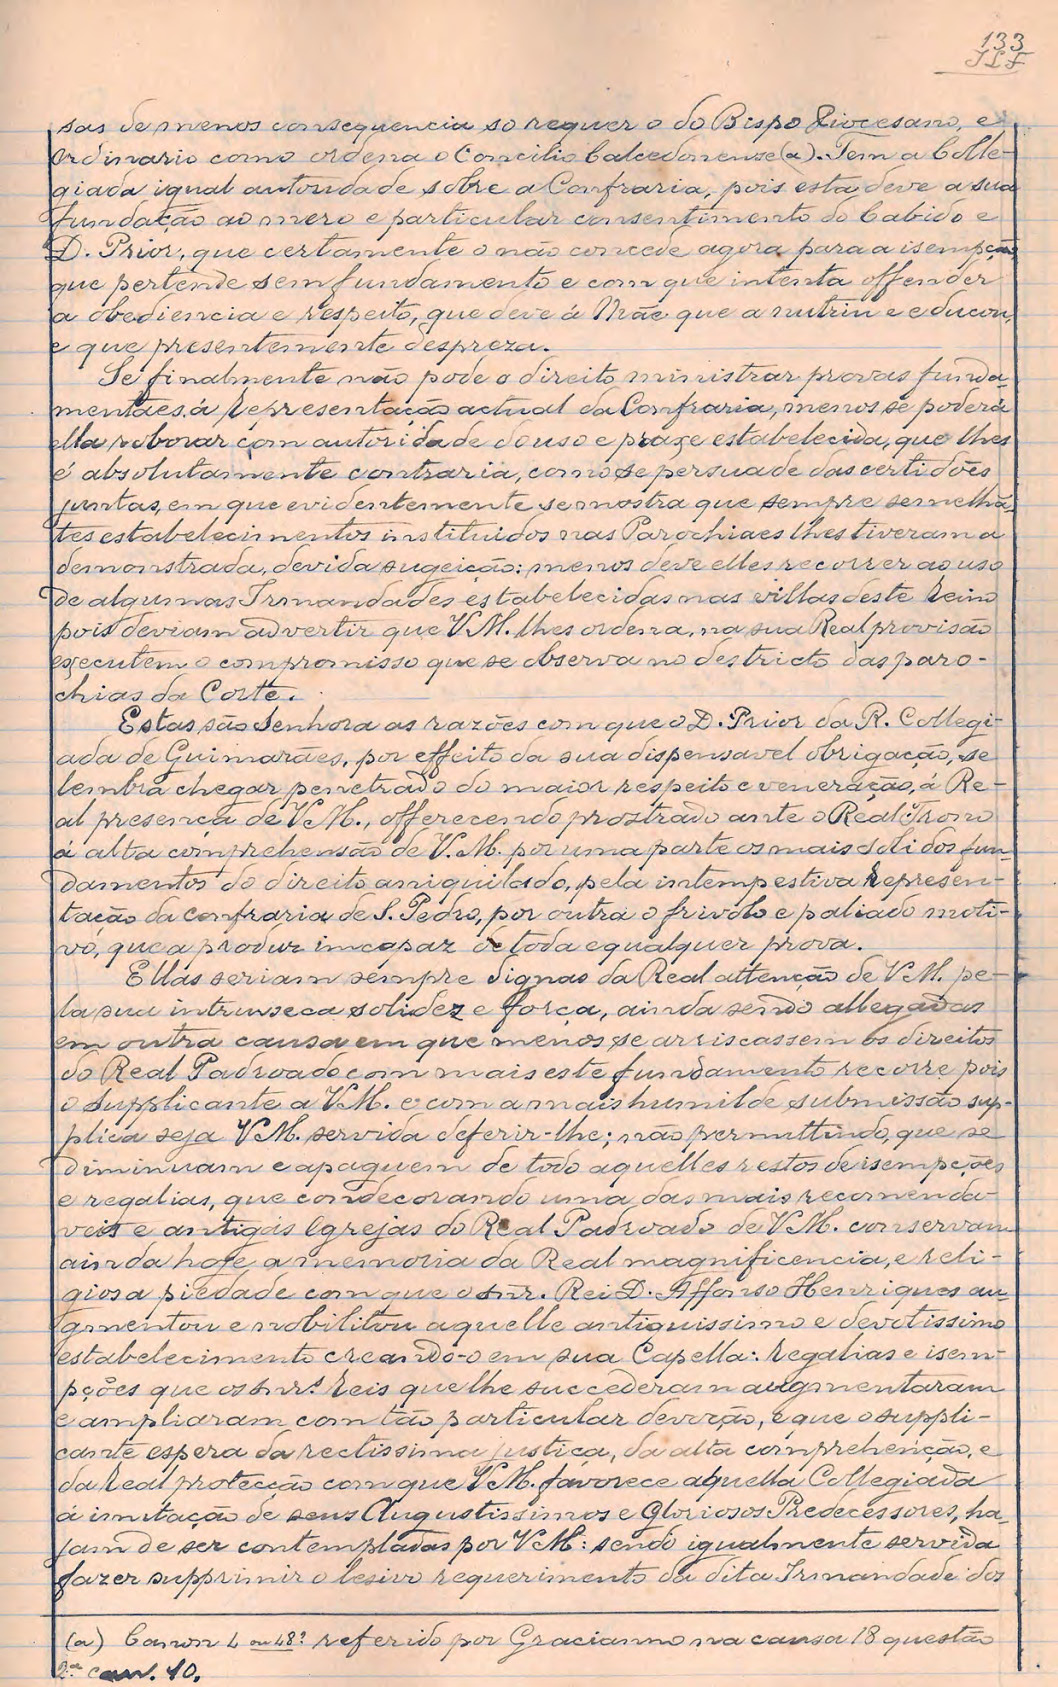 133
JLF
sas de menos consequencia so requer o do Bispo Diocesano, e
Ordinario como ordena o Concilio Calcedonense (a). Tem a Colle-
giada igual autoridade sobre a Confraria, pois esta deve a sua
fundação ao mero e particular consentimento do Cabido e
D. Prior, que certamente o não concede agora para a isempção
que pertende sem fundamento e com que intenta offender
a obediencia e respeito, que deve á Mãe que a nutriu e educou,
e que presentemente despreza.
Se finalmente não pode o direito ministrar provas funda-
mentaes, á representação actual da Confraria, menos se poderá
ella roborar com autoridade do uso e praxe estabelecida, que lhes
é absolutamente contraria, como se persuade das certidões
juntas, em que evidentemente se mostra que sempre semelhã-
tes estabelecimentos instituidos nas Parochiaes lhes tiveram a
demonstrada, devida sugeição: menos deve elles recorrer ao uso
de algumas Irmandades estabelecidas nas villas deste Reino
pois deviam advertir que V.M. lhes ordena, na sua Real provisão
executem o compromisso que se observa no destricto das paro-
chias da Corte.
Estas são Senhora as razões com que o D. Prior da R. Collegi-
ada de Guimarães, por effeito da sua dispensavel obrigação, se
lembra chegar penetrado do maior respeito e veneração, á Re-
al presença de V.M., offerecendo prostrado ante o Real Trono
á alta comprehensão de V.M. por uma parte os mais solidos fun-
damentos do direito aniquilado, pela intempestiva Represen-
tação da confraria de S. Pedro, por outra o frivolo e paliado moti-
vo, que a produz incapaz de toda e qualquer prova.
Ellas seriam sempre dignas da Real attenção de V.M. pe-
la sua intrinseca solidez e força, ainda sendo allegadas
em outra causa em que menos se arriscassem os direitos
do Real Padroado com mais este fundamento recorre pois
o Supplicante a V.M. e com a mais humilde submissão sup-
plica seja V.M. servida deferir-lhe; não permittindo, que se
diminuam e apaguem de todo aquelles restos de isempções
e regalias, que condecorando uma das mais recomenda-
veis e antigas Igrejas do Real Padroado de V.M. conservam
ainda hoje a memoria da Real magnificencia, e reli-
giosa piedade com que o snr. Rei D. Affonso Henriques au-
gmentou e nobilitou aquelle antiquissimo e devotissimo
estabelecimento creando-o em sua Capella: regalias e isem-
pções que os snrs. Reis que lhe succederam augmentaram
e ampliaram com tão particular devoção, e que o suppli-
cante espera da rectissima justiça, da alta comprehenção, e
da Real protecção com que V.M. favorece aquella Collegiada
á imitação de seus Augustissimos e Gloriosos Predecessores, ha-
jam de ser contempladas por V.M: sendo igualmente servida
fazer supprimir o lesivo requerimento da dita Irmandade dos
(a) Canon 4 ou 48? referido por Gracianno na causa 18 questão
2ª can. 10.